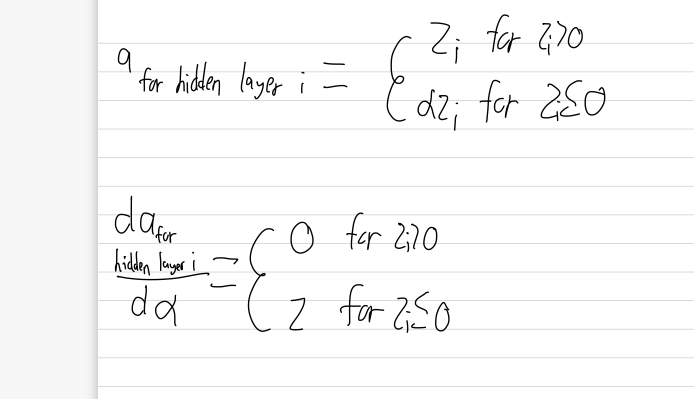 a for hidden layer i = { Zi for Zi>0
αZi for Zi≤0
da for hidden layer i / dα = { 0 for Zi>0
Z for Zi≤0